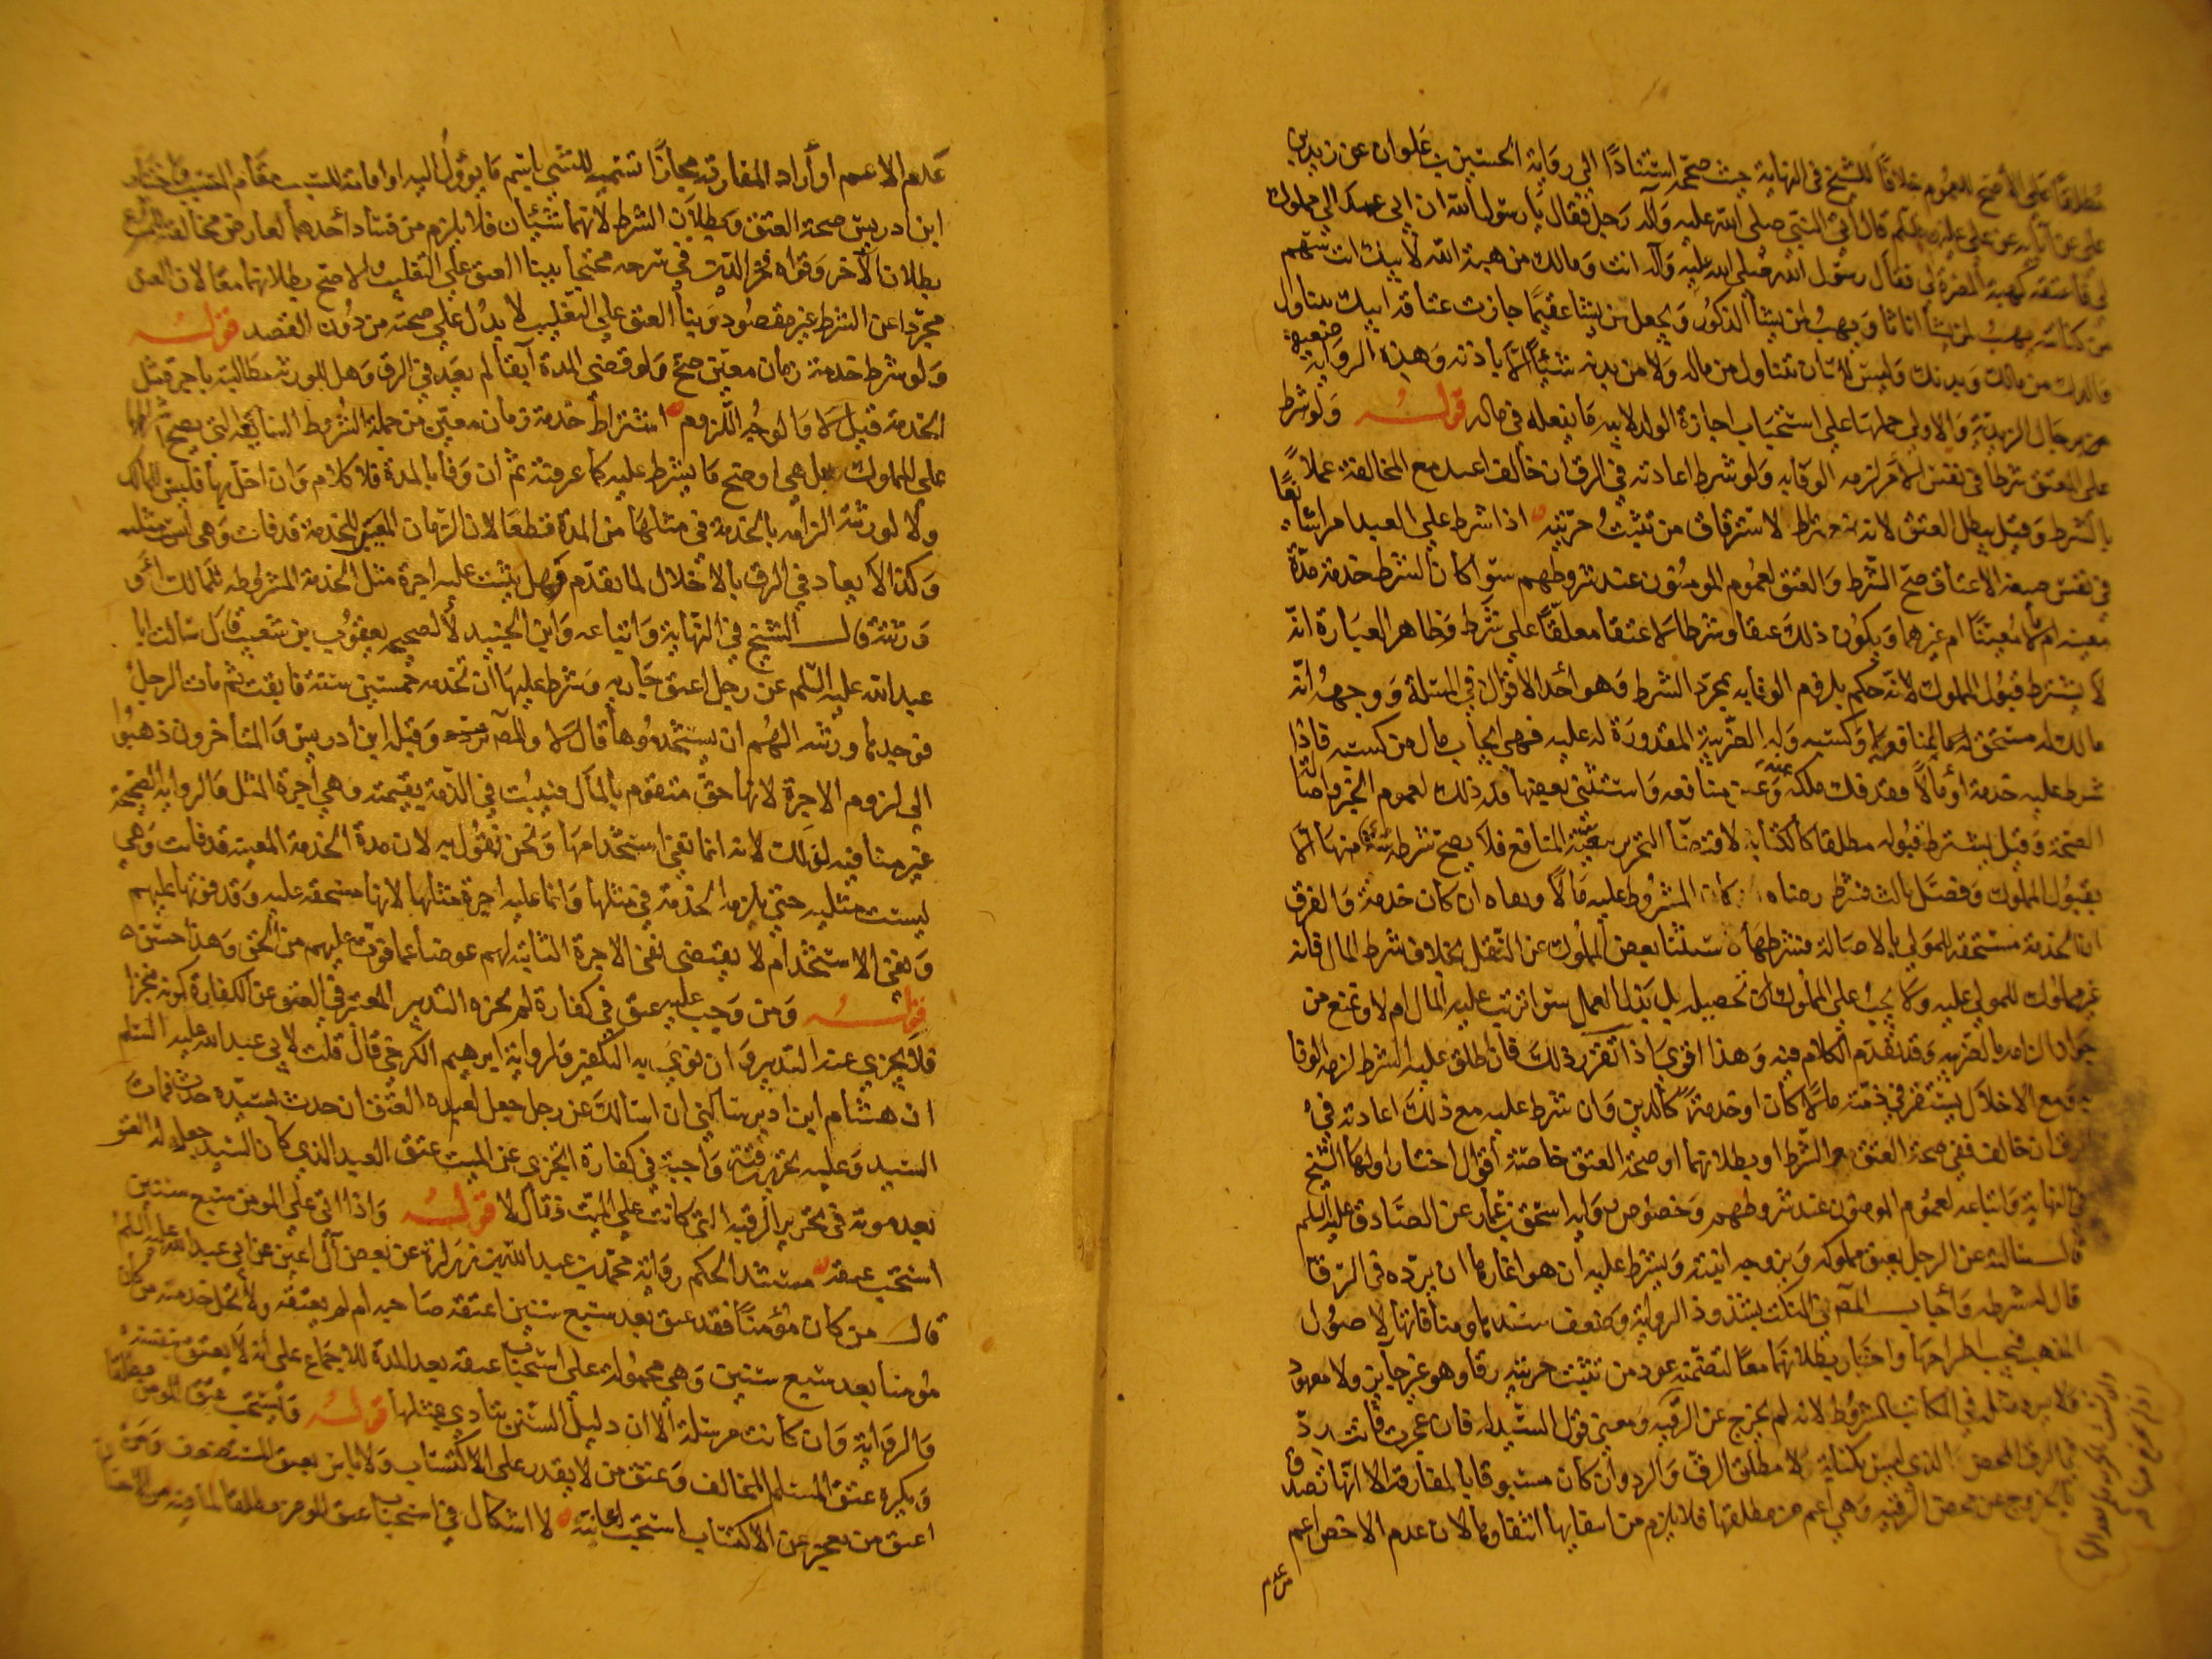 مطلقا على الأصح للعموم خلافا للشيخ في النهاية حيث صححه استنادا الى رواية الحسين بن علوان عن زيد بن
علي عن آبائه عن علي عليه السلم قال أتى النبي صلى الله عليه وآله رجل فقال يا رسول الله ان ابي عمد الى مملوك
لي فاعتقه كهيئة المضرة لي فقال رسول الله صلى الله عليه وآله انت ومالك من هبة الله لابيك انت سهم
من كنانته يهب لمن يشأ اناثا ويهب لمن يشأ الذكور ويجعل من يشا عقيما جازت عتاقة ابيك يتناول
والدك من مالك وبدنك وليس لك ان تتناول من ماله ولا من بدنه شيئا الا باذنه وهذه الرواية ضعيفة
من برجال الزيدية والاولى حملها على استحباب اجازة الولد لابيه ما يفعله في ماله قوله ولو شرط
على المعتق شرطا في نفس لزمه الوفا به ولو شرط اعادته في الرق ان خالف اعيد مع المخالفة عملا
بالشرط وقيل يبطل العتق لانه اشتراط لاسترقاق من تثبت حريته اذا شرط على العبد امرا سايغا
في نفس صيغة الاعتاق صح الشرط والعتق لعموم المومنون عند شروطهم سوا كان الشرط خدمة مدة
معينة ام مالا معينا ام غيرهما ويكون ذلك عتقا وشرطا لا عتقا معلقا على شرط وظاهر العبارة انه
لا يشترط قبول المملوك لانه حكم بلزوم الوفا به بمجرد الشرط وهو أحد الاقوال في المسلة ووجهه انه
مالك له مستحق لمنافعه وكسبه وله الضريبة المقدورة له عليه فهي ايجاب مال من كسبه فاذا
شرط عليه خدمة أو مالا فقد فك ملكه عنه وعن منافعه واستثنى بعضها فله ذلك لعموم الخبر واصالة
الصحة وقيل يشترط قبوله مطلقا كالكتابة لاقتضا التحرير تبعية المنافع فلا يصح شرط شي منها الا
بقبول المملوك وفصل ثالث فشرط رضاه ان كان المشروط عليه مالا ونفاه ان كان خدمة والفرق
ان الخدمة مستحقة للمولى بالاصالة فشرطها استثنا بعض المملوك عن النقل بخلاف شرط المال فانه
غير مملوك للمولى عليه ولا يجب على المملوك تحصيله بل بذل العمل سوا ترتب عليه المال ام لا وتمنع من
جواز الزامه بالضريبة وقد تقدم الكلام فيه وهذا اقوى اذا تقرر ذلك فان اطلق عليه الشرط لزمه الوفا
به ومع الاخلال يستقر في ذمته مالا كان او خدمة كالدين وان شرط عليه مع ذلك اعادته في
الرق ان خالف ففي صحة العتق مع الشرط او بطلانهما او صحة العتق خاصة أقوال اختار اولها الشيخ
في النهاية واتباعه لعموم المومنون عند شروطهم وخصوص رواية اسحق بن عمار عن الصادق عليه السلم
قال سالته عن الرجل يعتق مملوكه ويزوجه ابنته ويشترط عليه ان هو اغارها ان يرده في الرق قا
قال له شرطه وأجاب المصنف في النكت بشذوذ الرواية وضعف سندها ومنافاتها لاصول
المذهب فيجب اطراحها واختار بطلانهما معا لتضمنه عود من تثبت حريته رقا وهو غير جايز ولا معهود
ولا يرد مثله في المكاتب المشروط لانه لم يخرج عن الرقية ومعنى قول السيد له فان عجزت فانت رد
في الرق المحض الذي ليس بكتابة لا مطلق الرق والرد وان كان مسبوقا بالمفارقة الا انها تصدق
بالخروج عن محض الرقية وهي أعم من مطلقها فلا يلزم من ايقاعها انتفاؤها لان عدم الاخص اعم
من عدم
عدم الاعم او أراد المفارقة مجازا تسمية للشي باسم ما يؤول اليه او اقامة للسبب مقام المسبب واختار
ابن ادريس صحة العتق وبطلان الشرط لانهما شيئان فلا يلزم من فساد أحدهما لعارض مخالفة المشروع
بطلان الآخر وقواه فخر الدين في شرحه محتجا ببنا العتق على التغليب والاصح بطلانهما معا لان العتق
مجردا عن الشرط غير مقصود وبنا العتق على التغليب لا يدل على صحته من دون القصد قوله
ولو شرط خدمة زمان معين صح ولو قضى المدة آبقا لم يعد في الرق وهل للورثة مطالبته باجر مثل
الخدمة قيل لا والوجه اللزوم اشتراط خدمة زمان معين من جملة الشروط السايغة التي يصح اشتراطها
على المملوك بل هي اوضح ما يشرط عليه كما عرفته ثم ان وفا بالمدة فلا كلام وان اخل بها فليس للمالك
ولا لورثته الزامه بالخدمة في مثلها من المدة قطعا لان الزمان المعين للخدمة قد فات وهي ليست مثلية
وكذا لا يعاد في الرق بالاخلال لما تقدم وهل يثبت عليه اجرة مثل الخدمة المشروطة للمالك أو
ورثته قال الشيخ في النهاية واتباعه وابن الجنيد لا لصحيحة يعقوب بن شعيب قال سالت ابا
عبد الله عليه السلم عن رجل اعتق جاريته وشرط عليها ان تخدمه خمسين سنة فابقت ثم مات الرجل
فوجدها ورثته الهم ان يستخدموها قال لا والمصنف وقبله ابن ادريس والمتاخرون ذهبوا
الى لزوم الاجرة لانها حق متقوم بالمال فيثبت في الذمة بقيمته وهي أجرة المثل والرواية الصحيحة
غير منافية لذلك لانه انما نفى استخدامها ونحن نقول به لان مدة الخدمة المعينة قد فاتت وهي
ليست مثلية حتى يلزم الخدمة في مثلها وانما عليه اجرة مثلها لانها مستحقة عليه وقد فوتها عليهم
ونفي الاستخدام لا يقتضي نفي الاجرة الثابتة لهم عوضا عما فوت عليهم من الحق وهذا حسن
قوله ومن وجب عليه عتق في كفارة لم يجزه التدبير المعتبر في العتق عن الكفارة كونه منجزا
فلا يجزي عنه التدبير وان نوى به التكفير ولرواية ابرهيم الكرخي قال قلت لابي عبد الله عليه السلم
ان هشام ابن ادير سالني ان اسالك عن رجل جعل لعبده العتق ان حدث بسيده حدث فمات
السيد وعليه تحرير رقبة واجبة في كفارة ايجزي عن الميت عتق العبد الذي كان السيد جعل له العتق
بعد موته في تحرير الرقبة التي كانت على الميت فقال لا قوله واذا اتى على المومن سبع سنين
استحب عتقه مستند الحكم رواية محمد بن عبد الله بن زرارة عن بعض آل اعين عن ابي عبد الله عليه السلم
قال من كان مؤمنا فقد عتق بعد سبع سنين اعتقه صاحبه ام لم يعتقه ولا تحل خدمة من كان
مؤمنا بعد سبع سنين وهي محمولة على استحباب عتقه بعد المدة للاجماع على انه لا يعتق بنفسه
والرواية وان كانت مرسلة الا ان دليل السنن يتادى بمثلها قوله ويستحب عتق المومن مطلقا
ويكره عتق المسلم المخالف وعتق من لا يقدر على الاكتساب ولا باس بعتق المستضعف ومن
اعتق من يعجز عن الاكتساب استحب اعانته لا اشكال في استحباب عتق المومن مطلقا